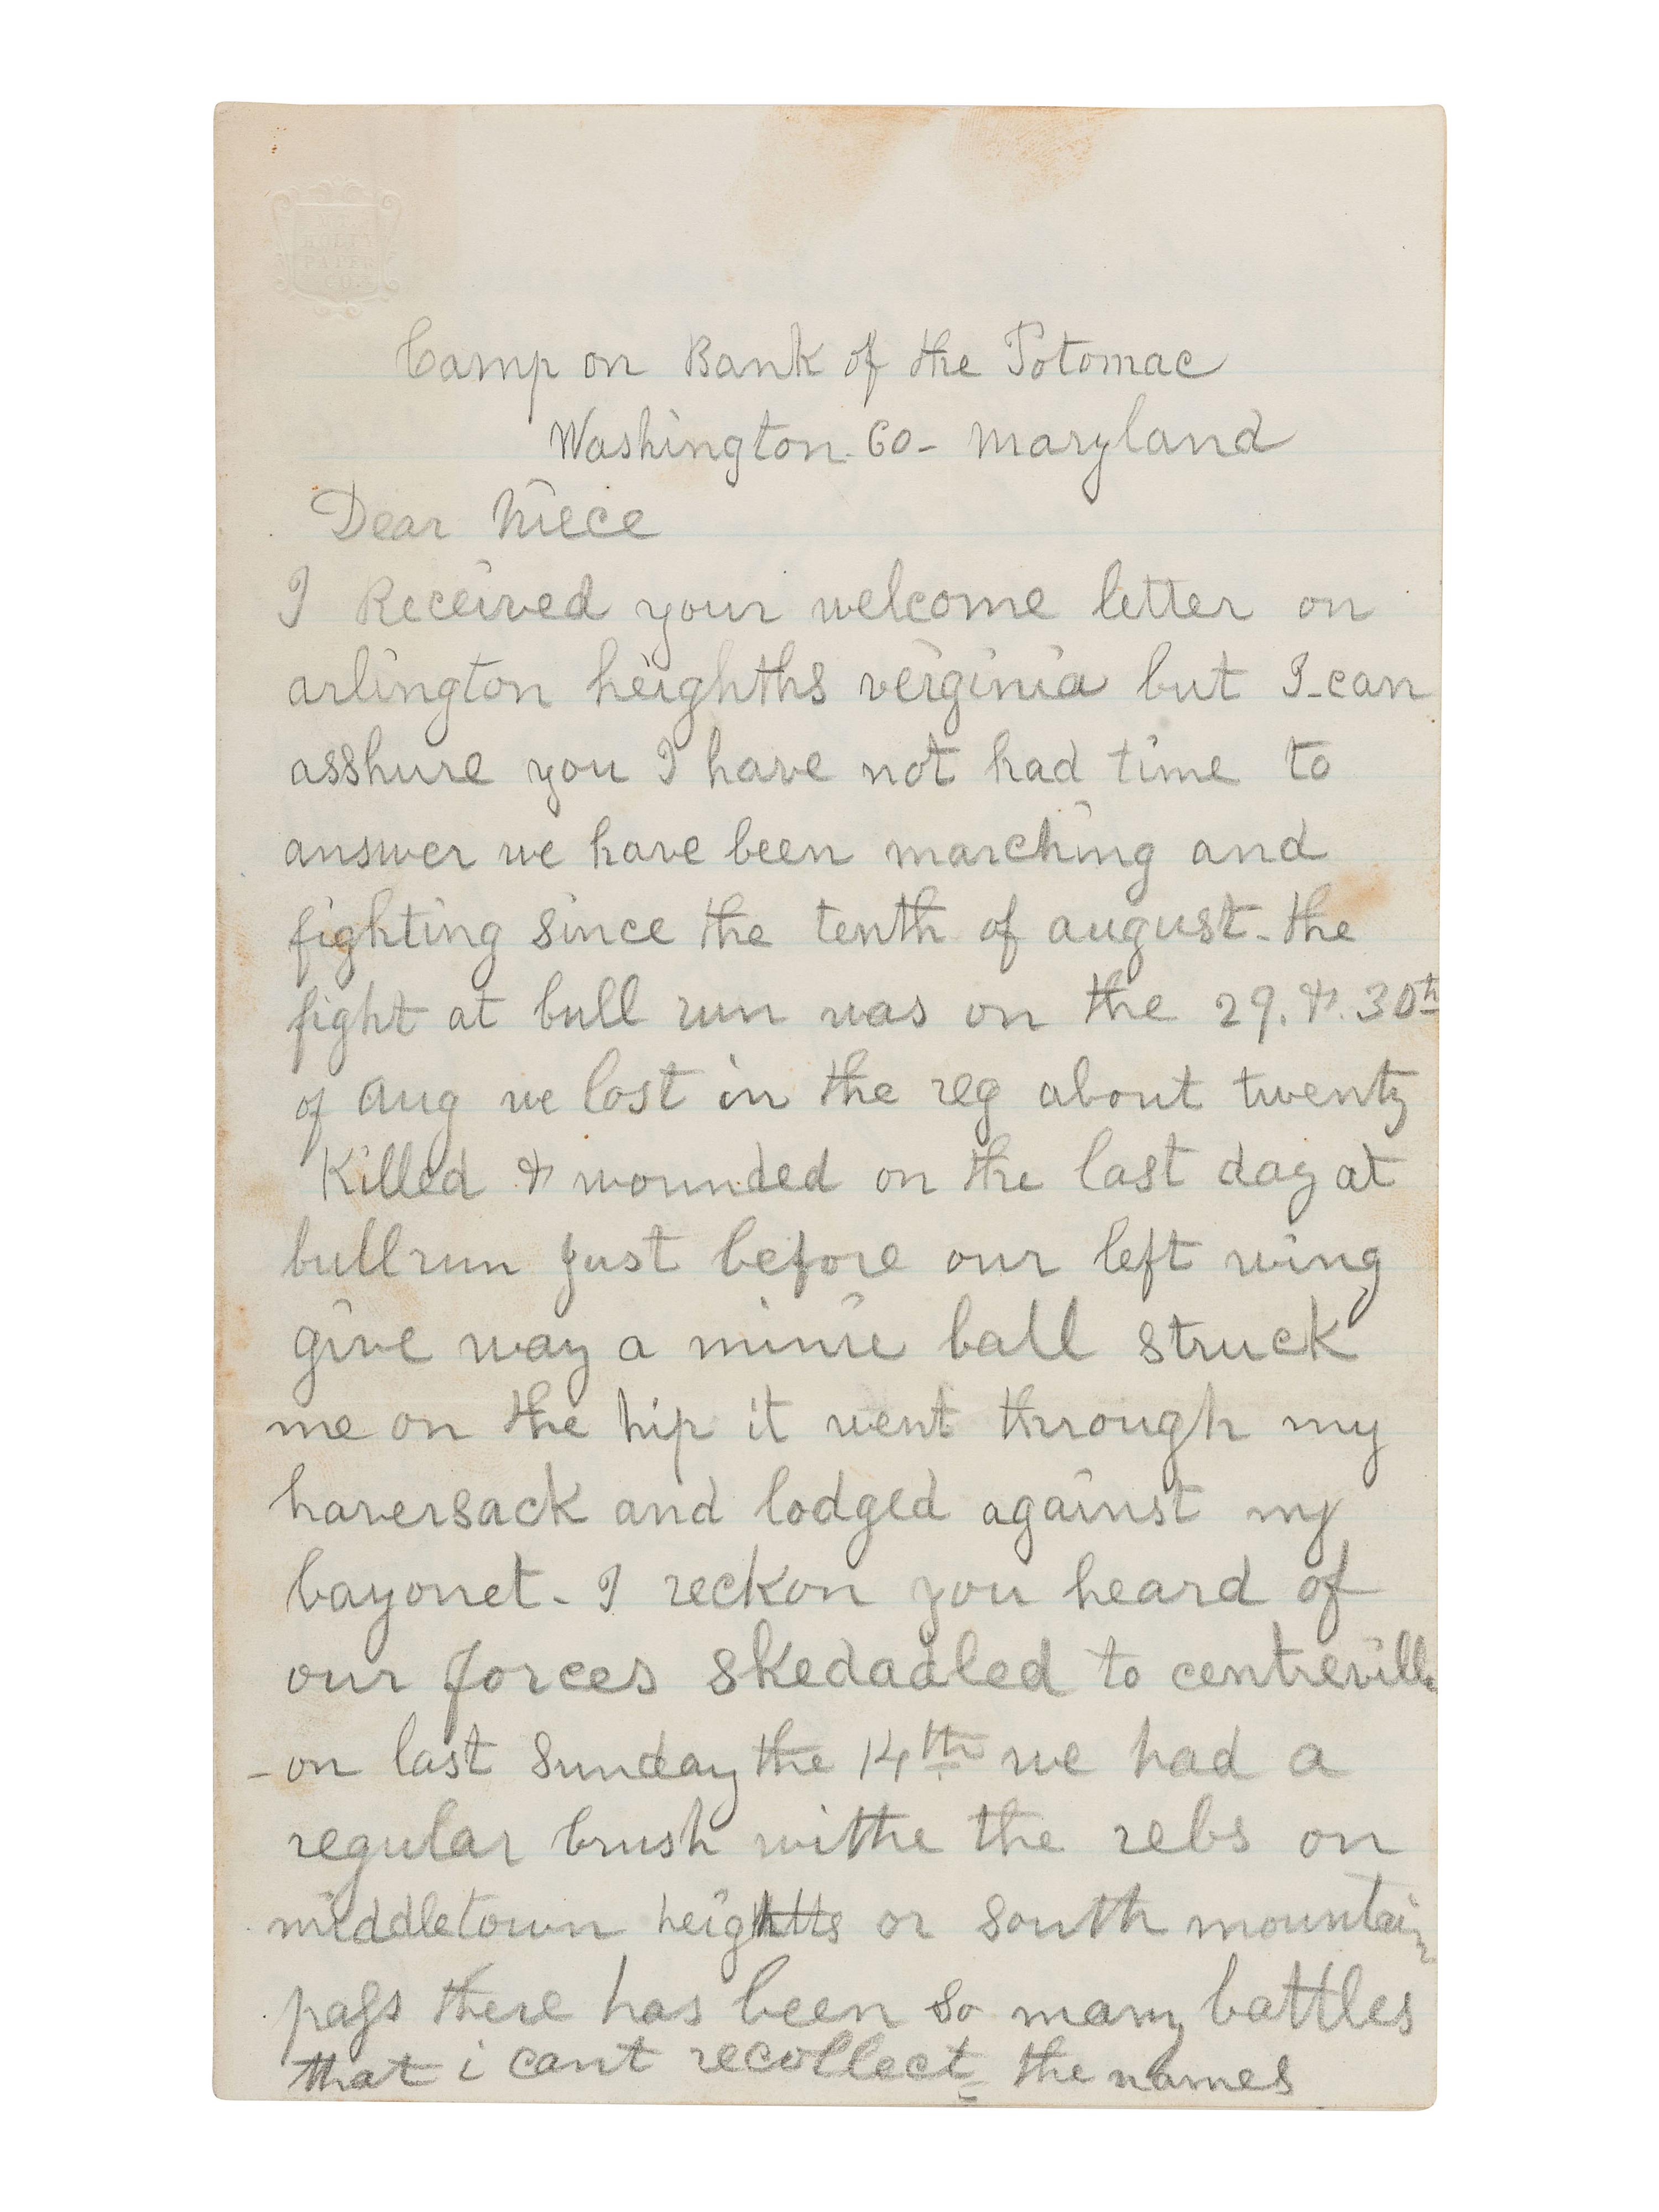 Camp on Bank of the Potomac
Washington Co- Maryland
Dear Niece
I Received your welcome letter on
arlington heighths verginia but I-can
asshure you I have not had time to
answer we have been marching and
fighting since the tenth of august- the
fight at bull run was on the 29. & 30th
of aug we lost in the reg about twenty
Killed & wounded on the last day at
bullrun just before our left wing
give way a minie ball struck
me on the hip it went through my
haversack and lodged against my
bayonet- I reckon you heard of
our forces skedadled to centreville
-on last Sunday the 14th we had a
regular brush withe the rebs on
middletown heights or south mountain
pass there has been so many battles
that i cant recollect the names
PAPER
CO.